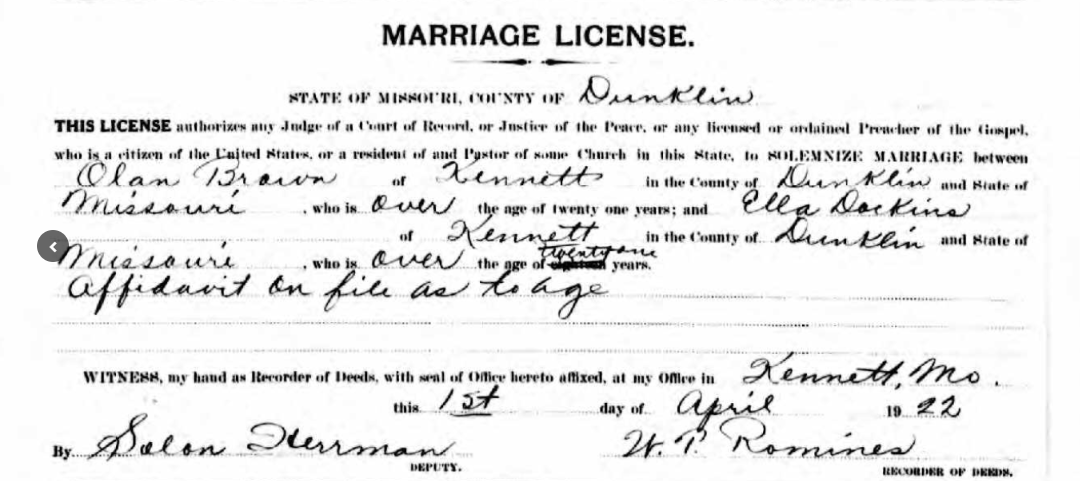 MARRIAGE LICENSE.
STATE OF MISSOURI, COUNTY OF Dunklin
THIS LICENSE authorizes any Judge of a Court of Record, or Justice of the Peace, or any licensed or ordained Preacher of the Gospel,
who is a citizen of the United States, or a resident of and Pastor of some Church in this State, to SOLEMNIZE MARRIAGE between
Olan Brown of Kennett in the County of Dunklin and State of
Missouri, who is over the age of twenty one years; and Ella Dockins
of Kennett in the County of Dunklin and State of
Missouri, who is over the age of eighteen twenty one years.
Affidavit on file as to age
WITNESS, my hand as Recorder of Deeds, with seal of Office hereto affixed, at my Office in Kennett, Mo.
this 1st day of April 1922
By Solon Herrman W. T. Romines
DEPUTY. RECORDER OF DEEDS.